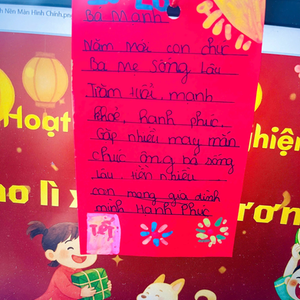 h Nền Màn Hình Chính.pn
Bà Mạnh
Năm mới con chúc
Ba Mẹ Sống lâu
Trăm tuổi, mạnh
khoẻ, Hạnh phúc,
Gặp nhiều may mắn
chúc ông bà sống
lâu, tiền nhiều
con mong gia đình
mình Hạnh Phúc
TẾT
Hoạt
ghiệ
ơ lì x
ươn